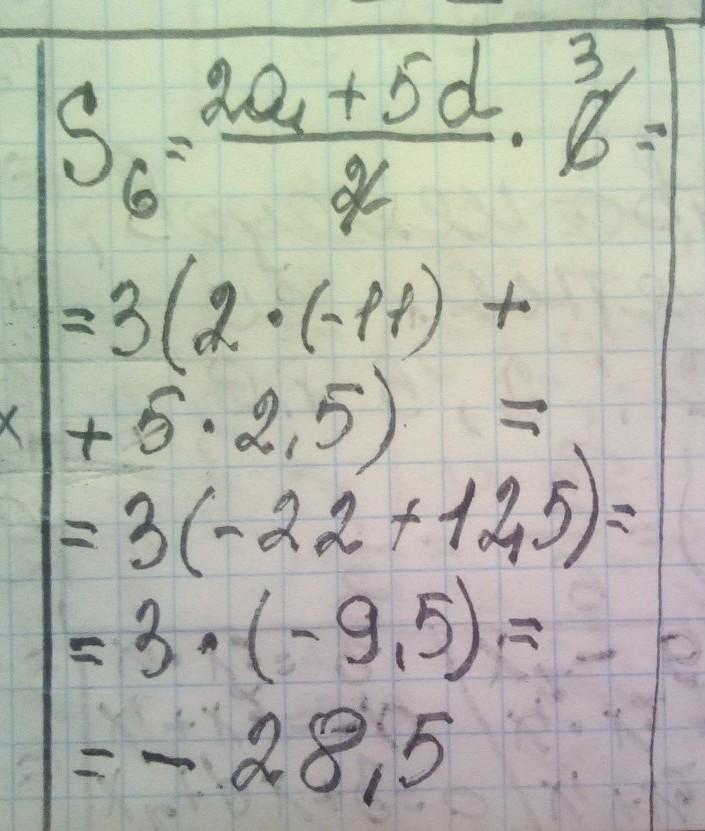 S₆ = (2a₁ + 5d)/2 · 6 3 =
= 3(2 · (-11) +
+ 5 · 2,5) =
= 3(-22 + 12,5) =
= 3 · (-9,5) =
= - 28,5